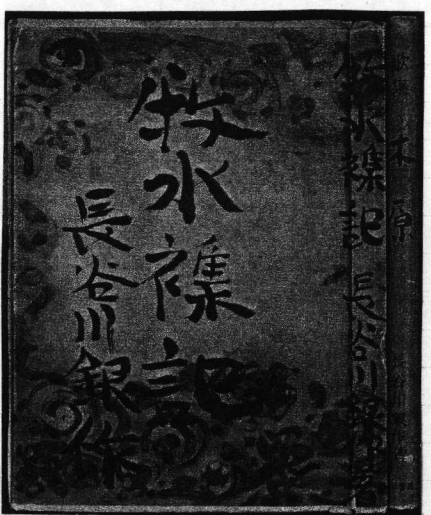 牧水襍記
長谷川銀作
牧水襍記 長谷川銀作著
木原